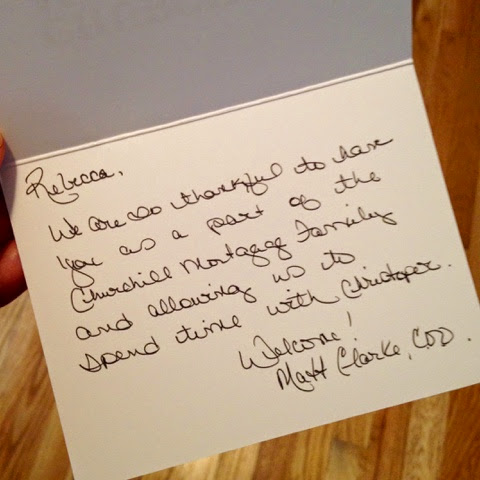 Rebecca,
We are so thankful to have
you as a part of the
Churchill Mortgage Family
and allowing us to
spend time with Christoper.
Welcome!
Matt Clarke, COO.